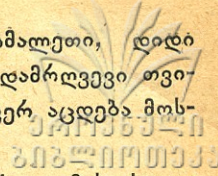 ამალეთი, დიდი
დამრღვევი თვი-
ვერ აცდება მოს-
ეროვნული
ბიბლიოთეკა